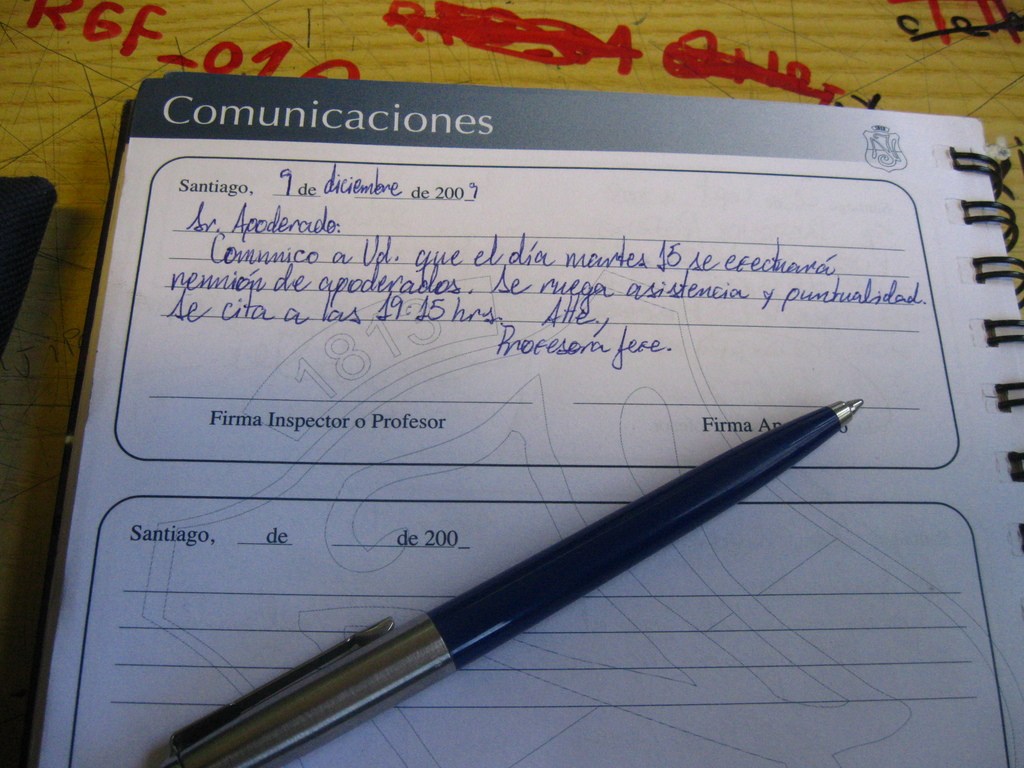 RGF
-010
Comunicaciones
Santiago, 9 de diciembre de 2009
Sr. Apoderado:
Comunico a Ud. que el día martes 15 se efectuará
reunión de apoderados. Se ruega asistencia y puntualidad.
Se cita a las 19:15 hrs. Atte.,
Profesora jefe.
1813
Firma Inspector o Profesor
Firma Ap o
Santiago, __ de ______ de 200_